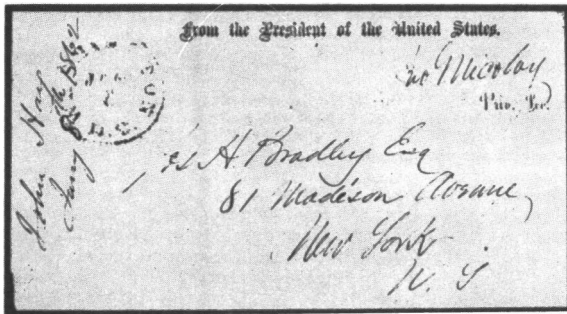 From the President of the United States.
Nicolay
Priv. Sec.
John Hay
Jany 8th 1862
H. Bradley Esq
81 Madison Avenue,
New York
N. Y